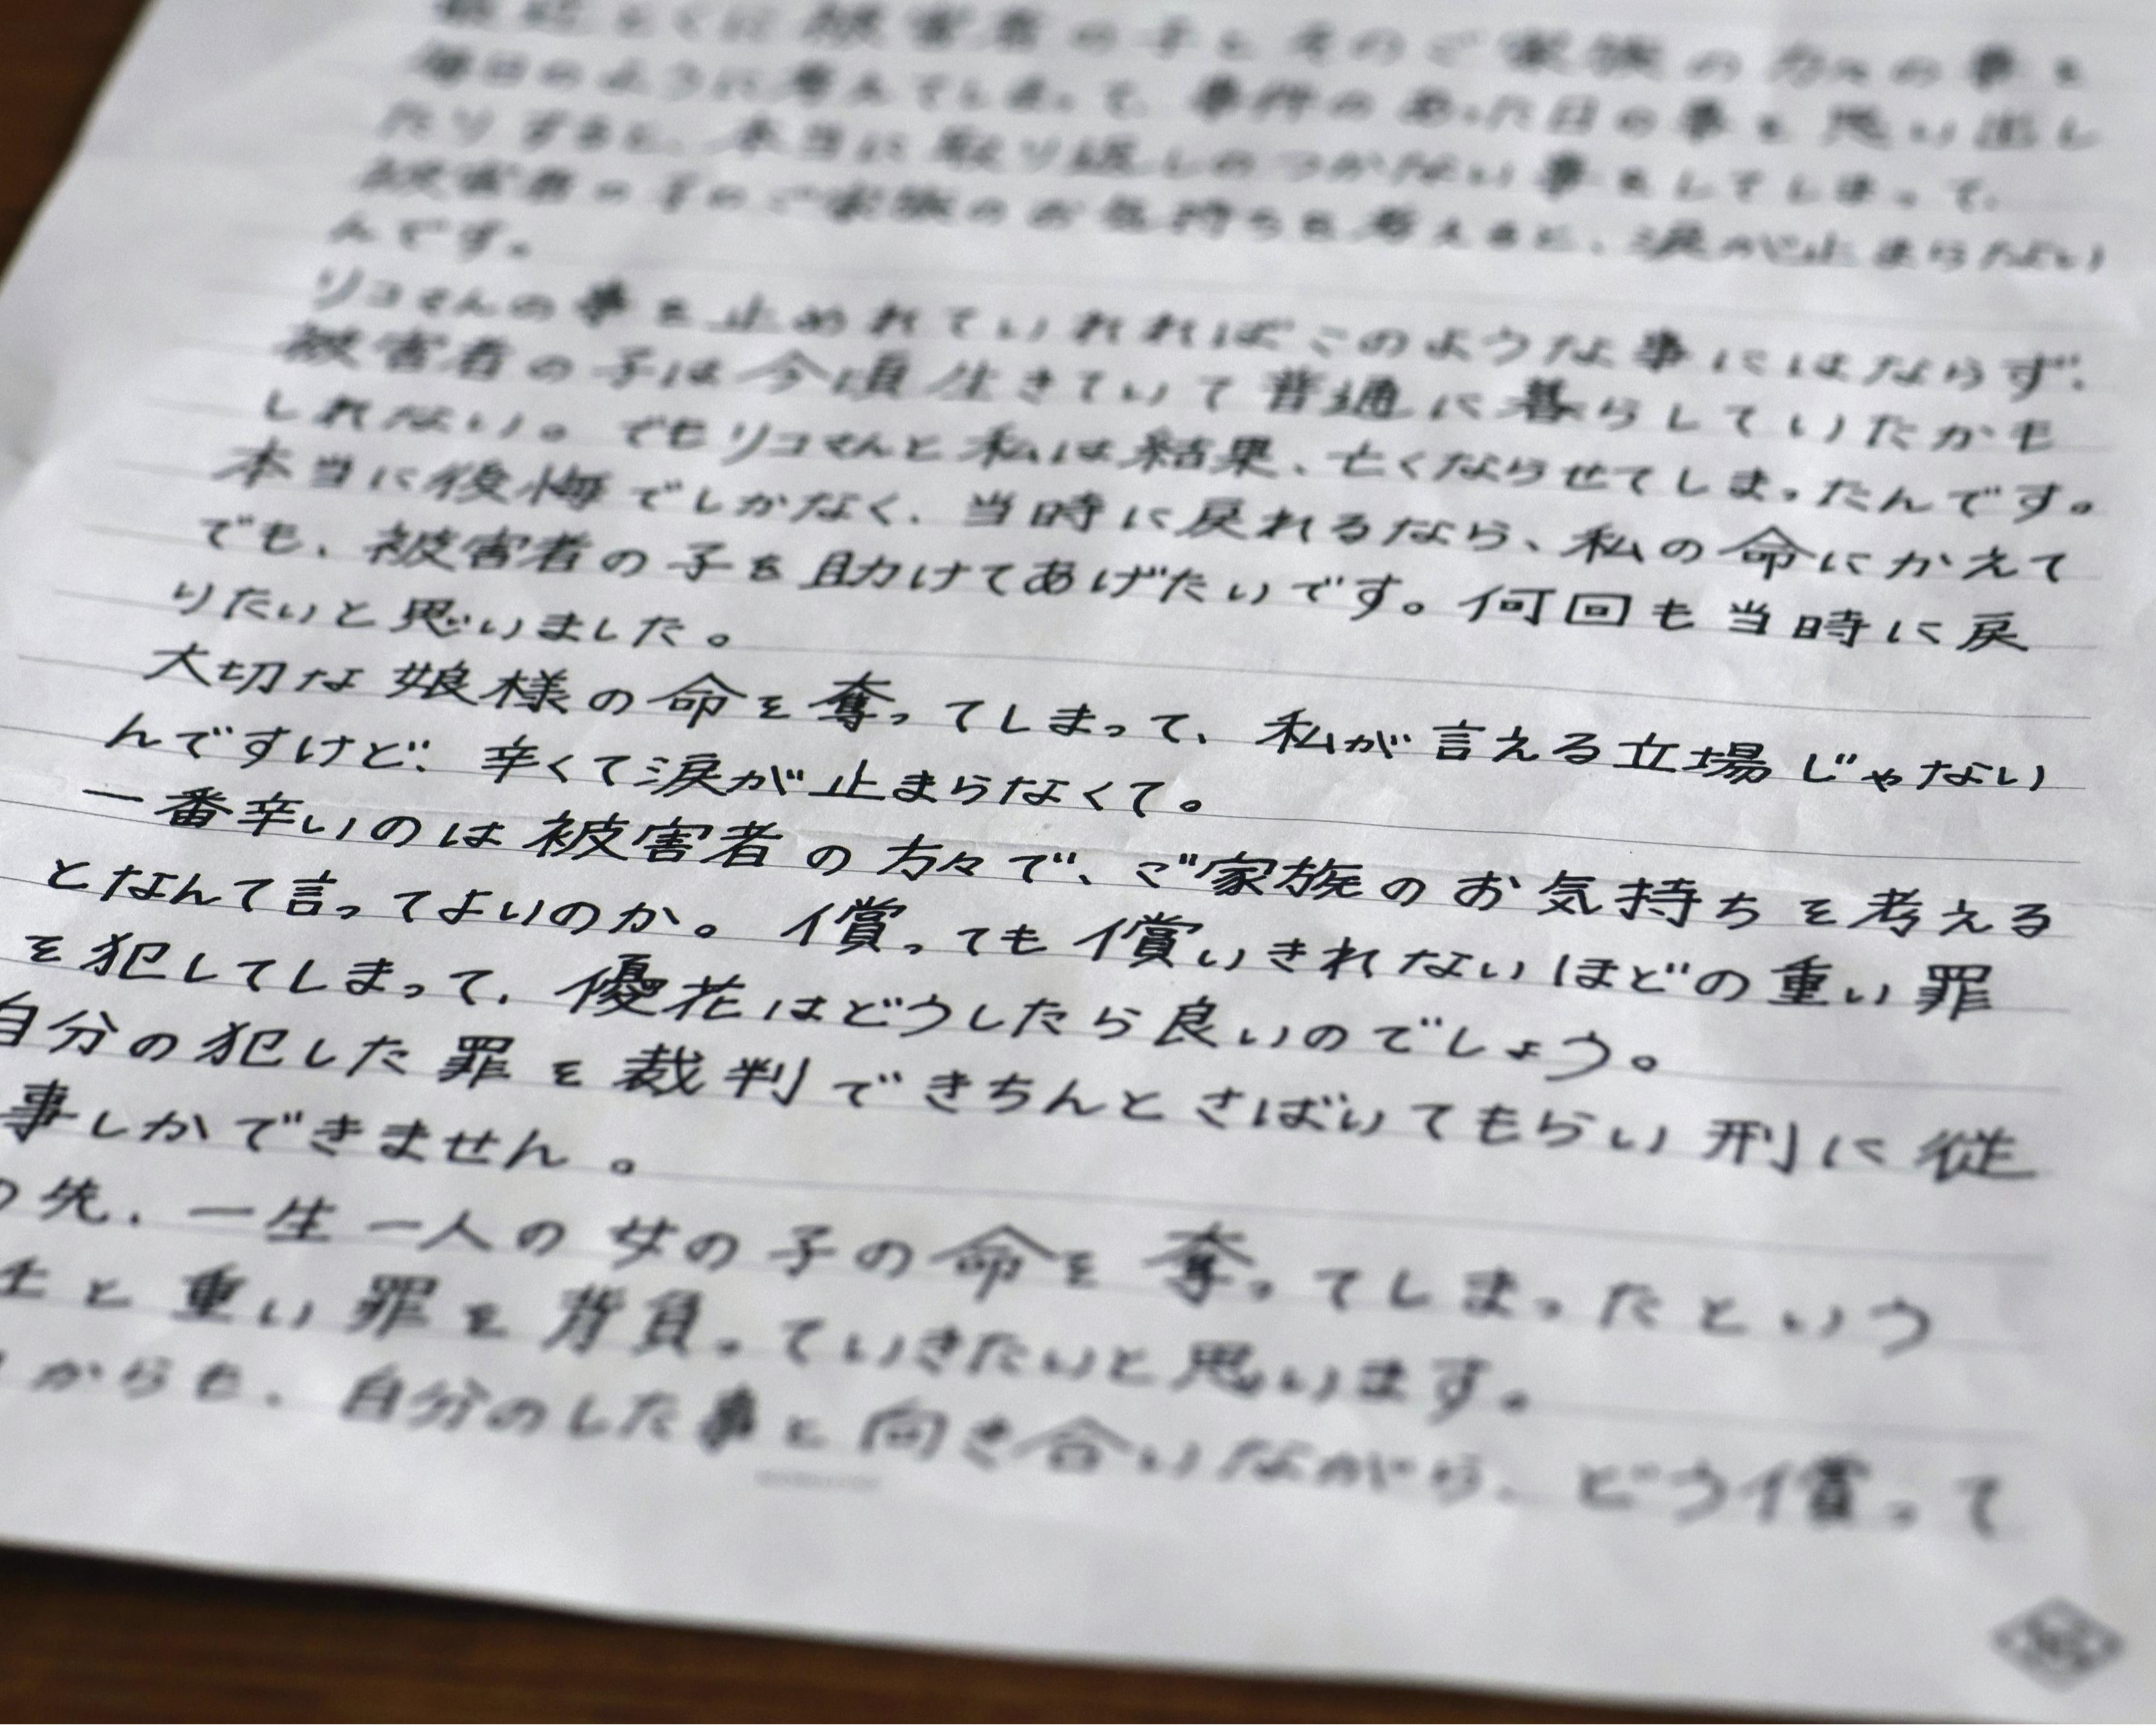 最近とくに被害者の子とそのご家族の方々の事を
毎日のように考えてしまって、事件のあった日の事を思い出し
たりすると、本当に取り返しのつかない事をしてしまって、
被害者の子のご家族のお気持ちを考えると、涙が止まらない
んです。
リコさんの事を止めれていれればこのような事にはならず、
被害者の子は今頃生きていて普通に暮らしていたかも
しれない。でもリコさんと私は結果、亡くならせてしまったんです。
本当に後悔でしかなく、当時に戻れるなら、私の命にかえて
でも、被害者の子を助けてあげたいです。何回も当時に戻
りたいと思いました。
大切な娘様の命を奪ってしまって、私が言える立場じゃない
んですけど、辛くて涙が止まらなくて。
一番辛いのは被害者の方々で、ご家族のお気持ちを考える
となんて言ってよいのか。償っても償いきれないほどの重い罪
を犯してしまって、優花はどうしたら良いのでしょう。
自分の犯した罪を裁判できちんとさばいてもらい刑に従
事しかできません。
の先、一生一人の女の子の命を奪ってしまったという
と重い罪を背負っていきたいと思います。
からも、自分のした事と向き合いながら、どう償って